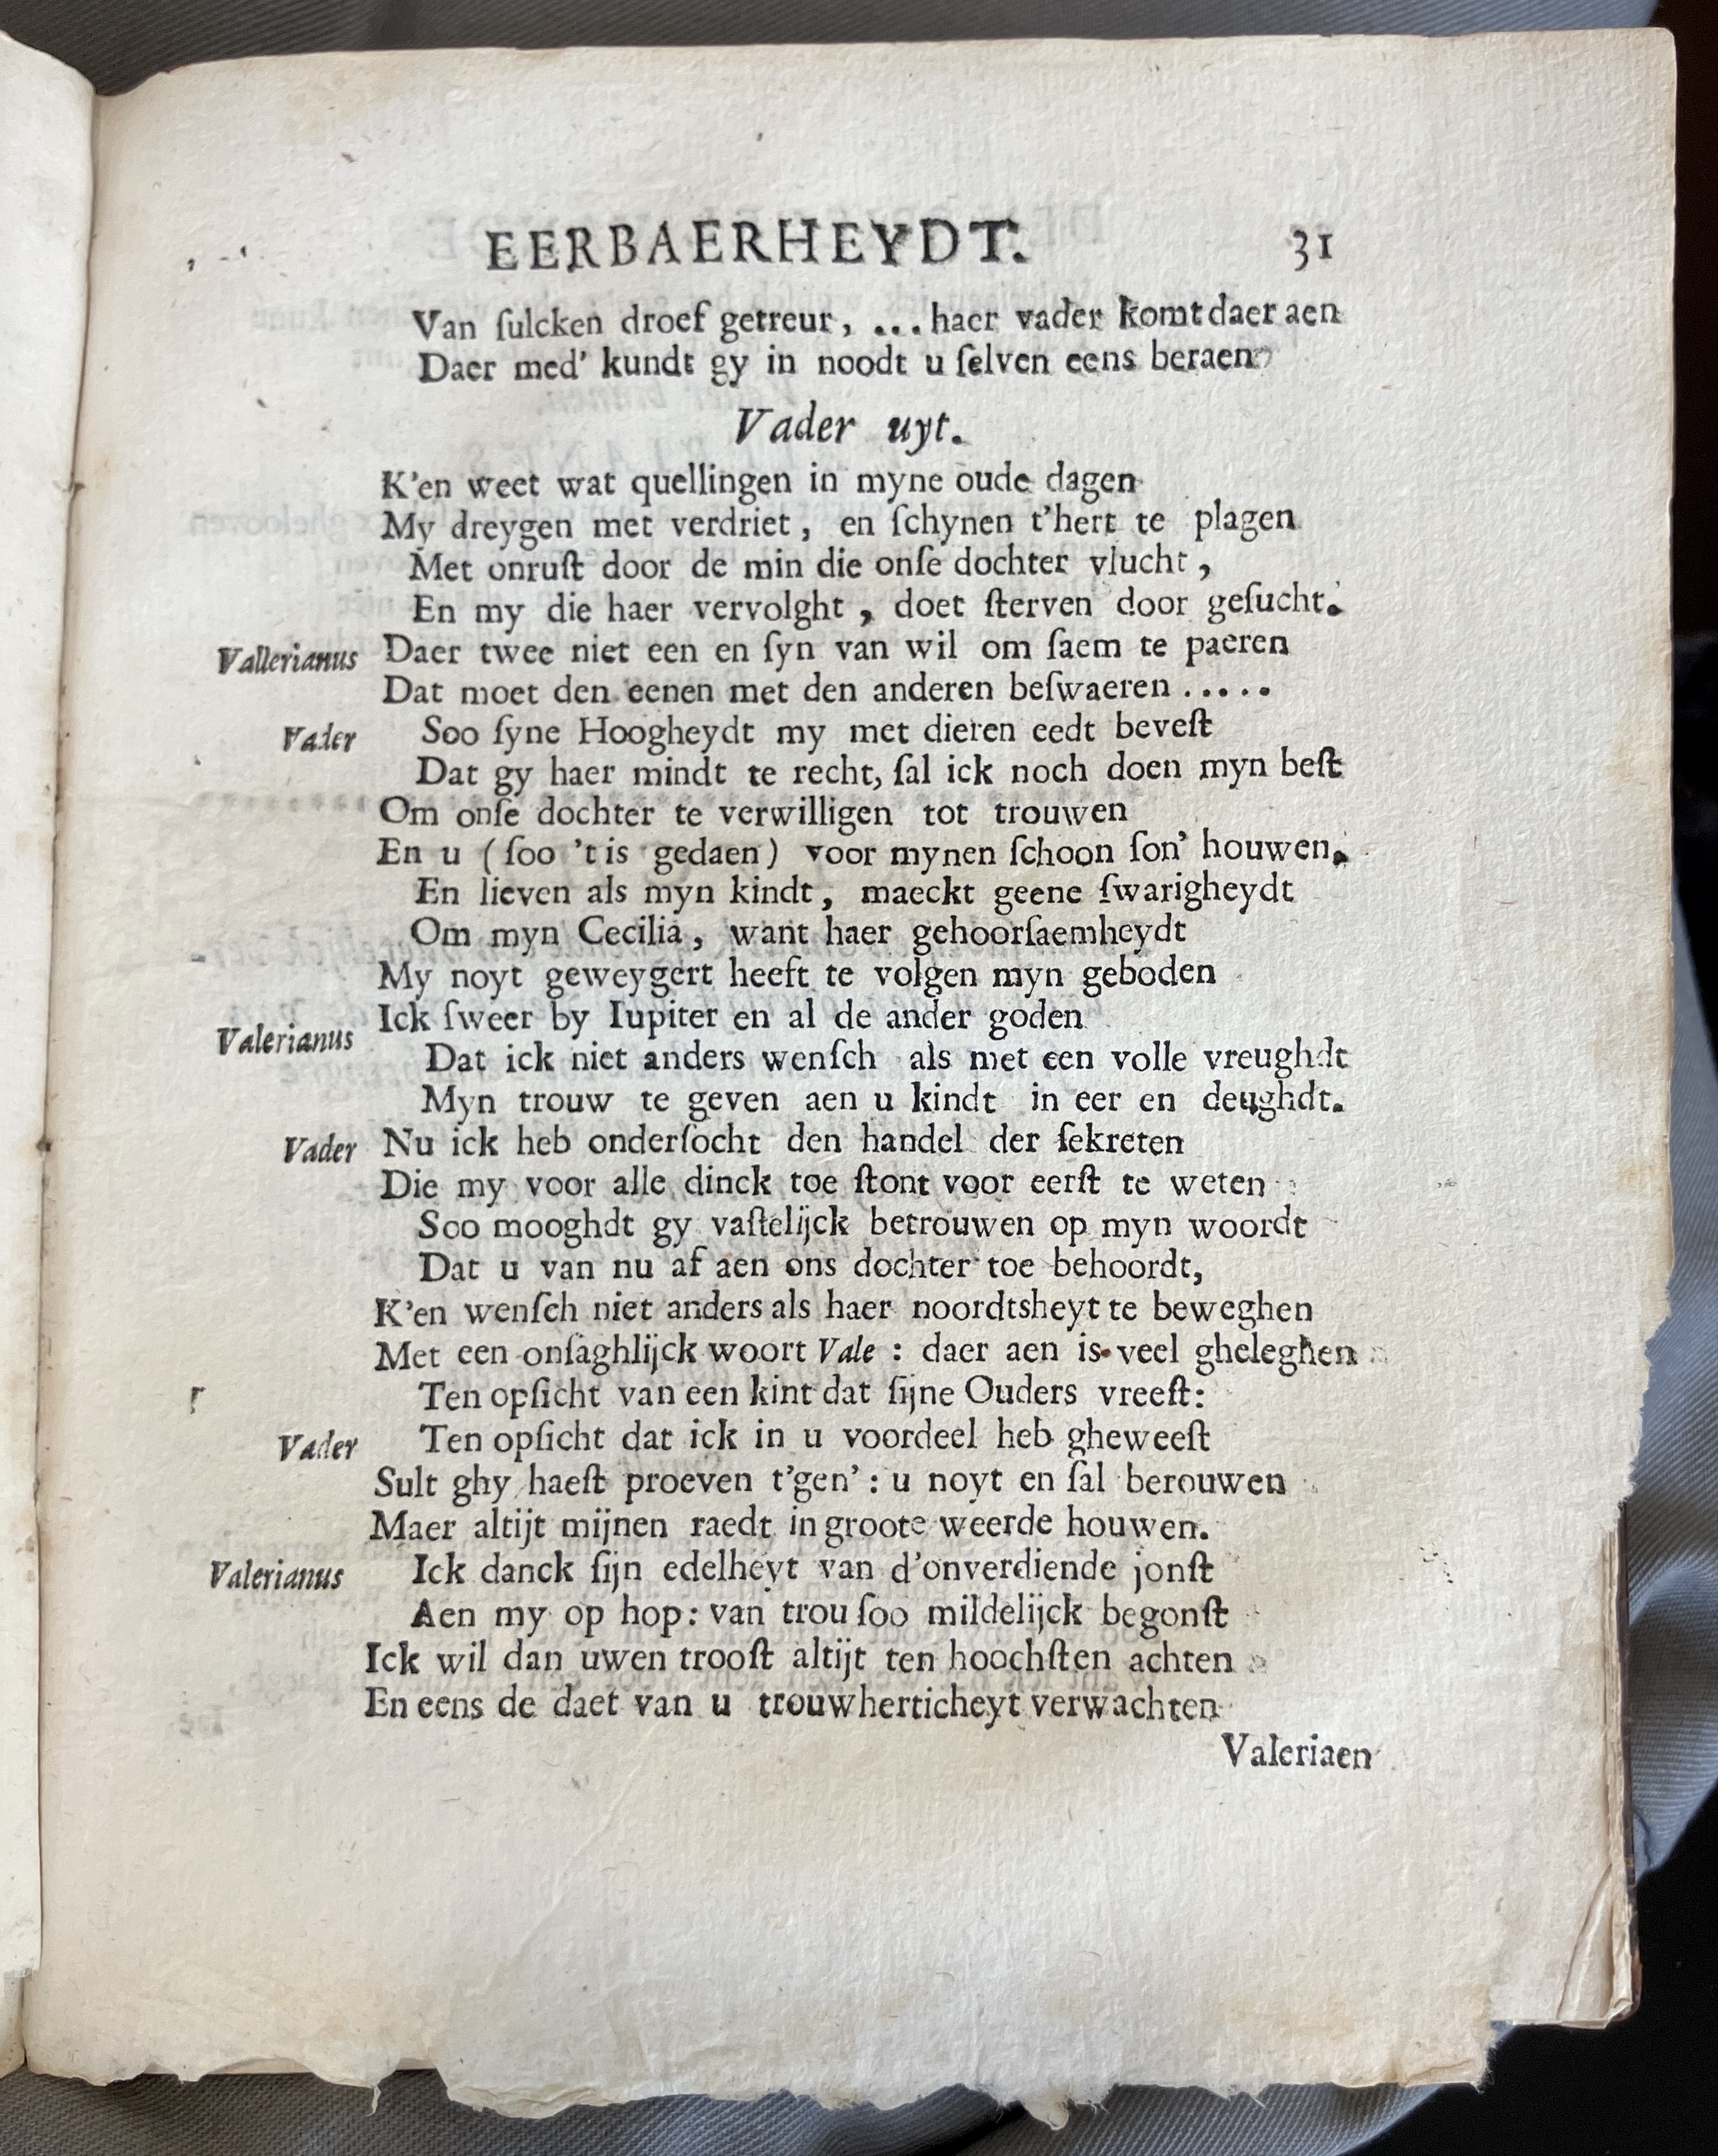 EERBAERHEYDT. 31
Van ſulcken droef getreur, ... haer vader komt daer aen
Daer med' kundt gy in noodt u ſelven eens beraen
Vader uyt.
K'en weet wat quellingen in myne oude dagen
My dreygen met verdriet, en ſchynen t'hert te plagen
Met onruſt door de min die onſe dochter vlucht,
En my die haer vervolght, doet ſterven door geſucht.
Vallerianus Daer twee niet een en ſyn van wil om ſaem te paeren
Dat moet den eenen met den anderen beſwaeren .....
Vader Soo ſyne Hoogheydt my met dieren eedt beveſt
Dat gy haer mindt te recht, ſal ick noch doen myn beſt
Om onſe dochter te verwilligen tot trouwen
En u (ſoo 't is gedaen) voor mynen ſchoon ſon' houwen.
En lieven als myn kindt, maeckt geene ſwarigheydt
Om myn Cecilia, want haer gehoorſaemheydt
My noyt geweygert heeft te volgen myn geboden
Valerianus Ick ſweer by Iupiter en al de ander goden
Dat ick niet anders wenſch als met een volle vreughdt
Myn trouw te geven aen u kindt in eer en deughdt.
Vader Nu ick heb onderſocht den handel der ſekreten
Die my voor alle dinck toe ſtont voor eerſt te weten
Soo mooghdt gy vaſtelijck betrouwen op myn woordt
Dat u van nu af aen ons dochter toe behoordt,
K'en wenſch niet anders als haer noordtsheyt te beweghen
Met een onſaghlijck woort Vale : daer aen is veel gheleghen
Ten opſicht van een kint dat ſijne Ouders vreeſt:
Vader Ten opſicht dat ick in u voordeel heb gheweeſt
Sult ghy haeſt proeven t'gen' : u noyt en ſal berouwen
Maer altijt mijnen raedt in groote weerde houwen.
Valerianus Ick danck ſijn edelheyt van d'onverdiende jonſt
Aen my op hop: van trou ſoo mildelijck begonſt
Ick wil dan uwen trooſt altijt ten hoochſten achten
En eens de daet van u trouwherticheyt verwachten
Valeriaen